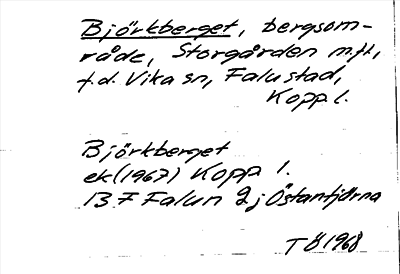 Björkberget, bergsom-
råde, Storgården m.fl.,
f.d. Vika sn, Falu stad,
Kopp l.
Björkberget
ek (1967) Kopp l.
13 F Falun 2 j Östantjärna
TÖ 1968